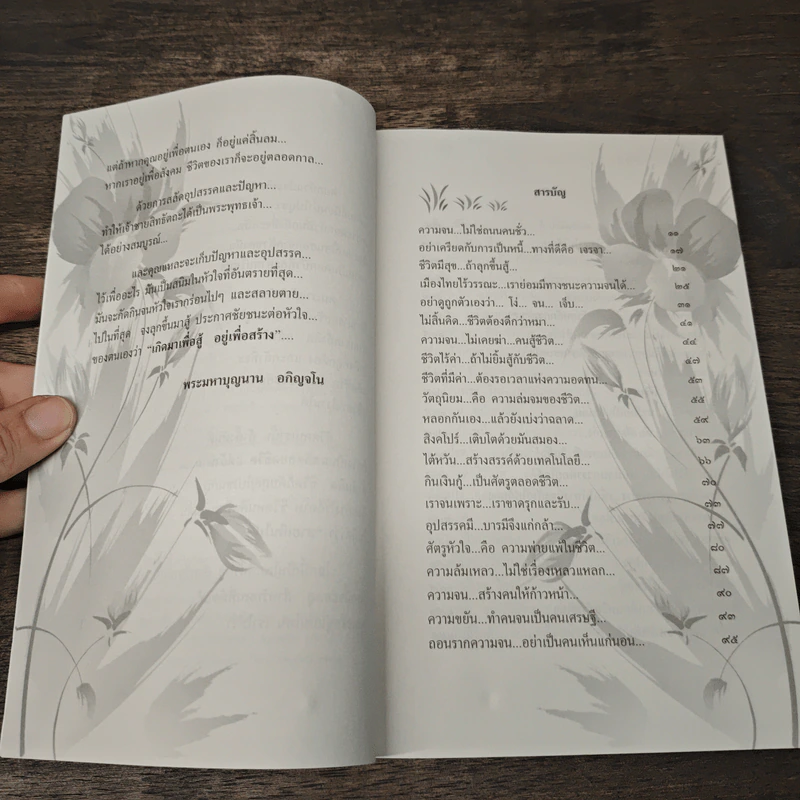 แต่ถ้าหากคุณอยู่เพื่อตนเอง ก็อยู่แค่สิ้นลม...
หากเราอยู่เพื่อสังคม ชีวิตของเราก็จะอยู่ตลอดกาล...
ด้วยการสลัดอุปสรรคและปัญหา...
ทำให้เจ้าชายสิทธัตถะได้เป็นพระพุทธเจ้า...
ได้อย่างสมบูรณ์...
และคุณแหละจะเก็บปัญหาและอุปสรรค...
ไว้เพื่ออะไร มันเป็นสนิมในหัวใจที่อันตรายที่สุด...
มันจะกัดกินจนหัวใจเรากร่อนไปๆ และสลายตาย...
ไปในที่สุด จงลุกขึ้นมาสู้ ประกาศชัยชนะต่อหัวใจ...
ของตนเองว่า “เกิดมาเพื่อสู้ อยู่เพื่อสร้าง”....
พระมหาบุญนาน อภิญจโน
สารบัญ
ความจน...ไม่ใช่ถนนคนชั่ว... ๑๑
อย่าเครียดกับการเป็นหนี้...ทางที่ดีคือ เจรจา... ๑๗
ชีวิตมีสุข...ถ้าลุกขึ้นสู้... ๒๑
เมืองไทยไร้วรรณะ...เราย่อมมีทางชนะความจนได้... ๒๕
อย่าดูถูกตัวเองว่า... โง่... จน... เจ็บ... ๓๑
ไม่สิ้นคิด...ชีวิตต้องดีกว่าหมา... ๔๑
ความจน...ไม่เคยฆ่า...คนสู้ชีวิต... ๔๔
ชีวิตไร้ค่า...ถ้าไม่ยิ้มสู้กับชีวิต... ๔๗
ชีวิตที่มีค่า...ต้องรอเวลาแห่งความอดทน... ๕๓
วัตถุนิยม...คือ ความล่มจมของชีวิต... ๕๕
หลอกกันเอง...แล้วยังเบ่งว่าฉลาด... ๕๙
สิงคโปร์...เติบโตด้วยมันสมอง... ๖๓
ไต้หวัน...สร้างสรรค์ด้วยเทคโนโลยี... ๖๖
กินเงินกู้...เป็นศัตรูตลอดชีวิต... ๗๐
เราจนเพราะ...เราขาดรุกและรับ... ๗๓
อุปสรรคมี...บารมีจึงแก่กล้า... ๗๗
ศัตรูหัวใจ...คือ ความพ่ายแพ้ในชีวิต... ๘๐
ความล้มเหลว...ไม่ใช่เรื่องเหลวแหลก... ๘๗
ความจน...สร้างคนให้ก้าวหน้า... ๙๐
ความขยัน...ทำคนจนเป็นคนเศรษฐี... ๙๓
ถอนรากความจน...อย่าเป็นคนเห็นแก่นอน... ๙๕